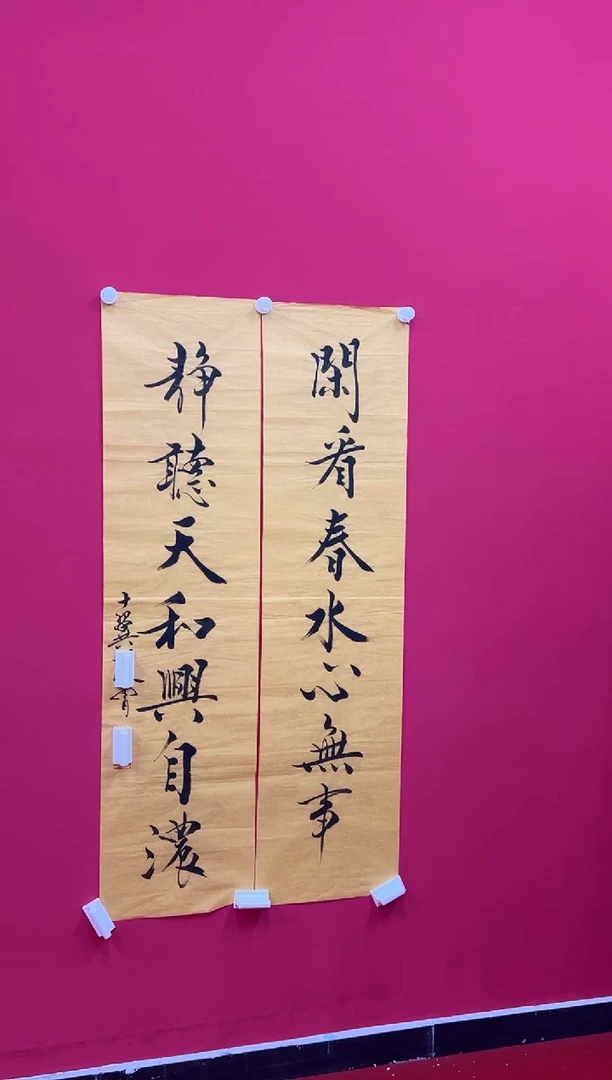 閑看春水心無事
静聽天和興自濃
十翼